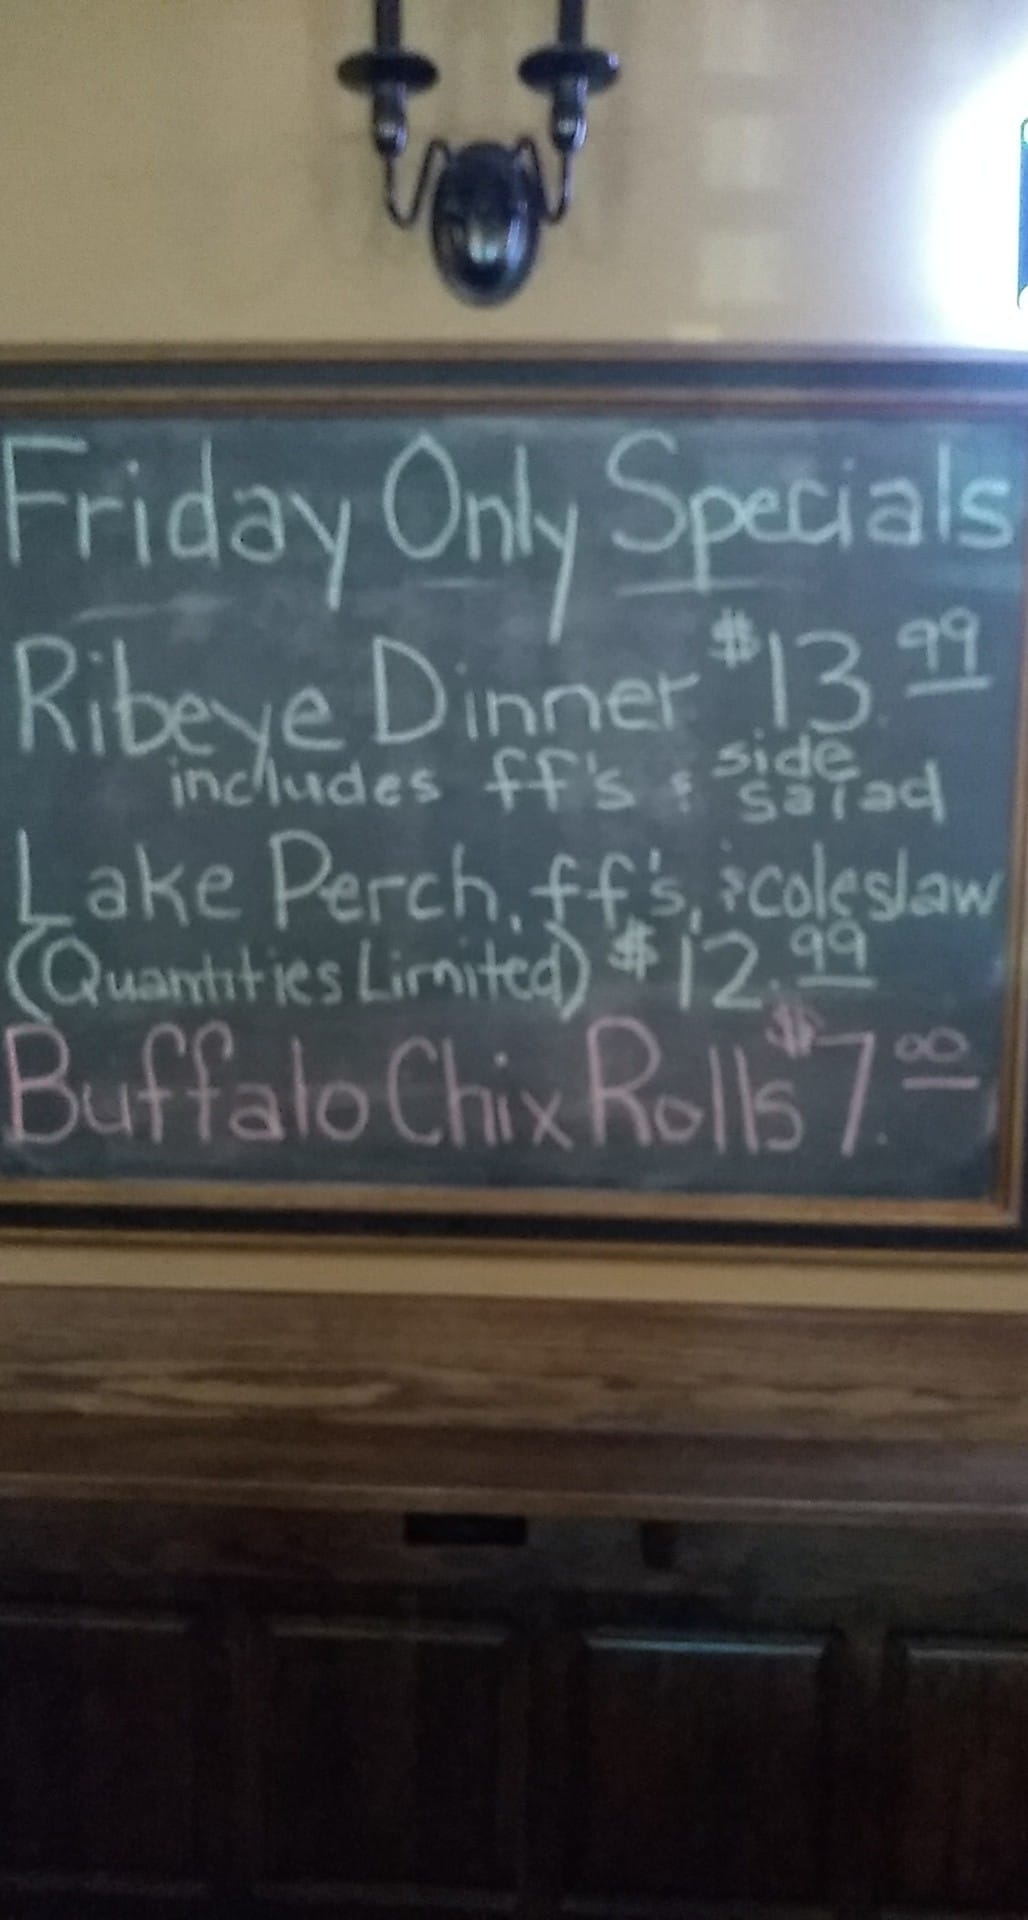 Friday Only Specials
Ribeye Dinner $13.99
includes ff's & side salad
Lake Perch, ff's, & coleslaw
(Quantities Limited) $12.99
Buffalo Chix Rolls $7.00